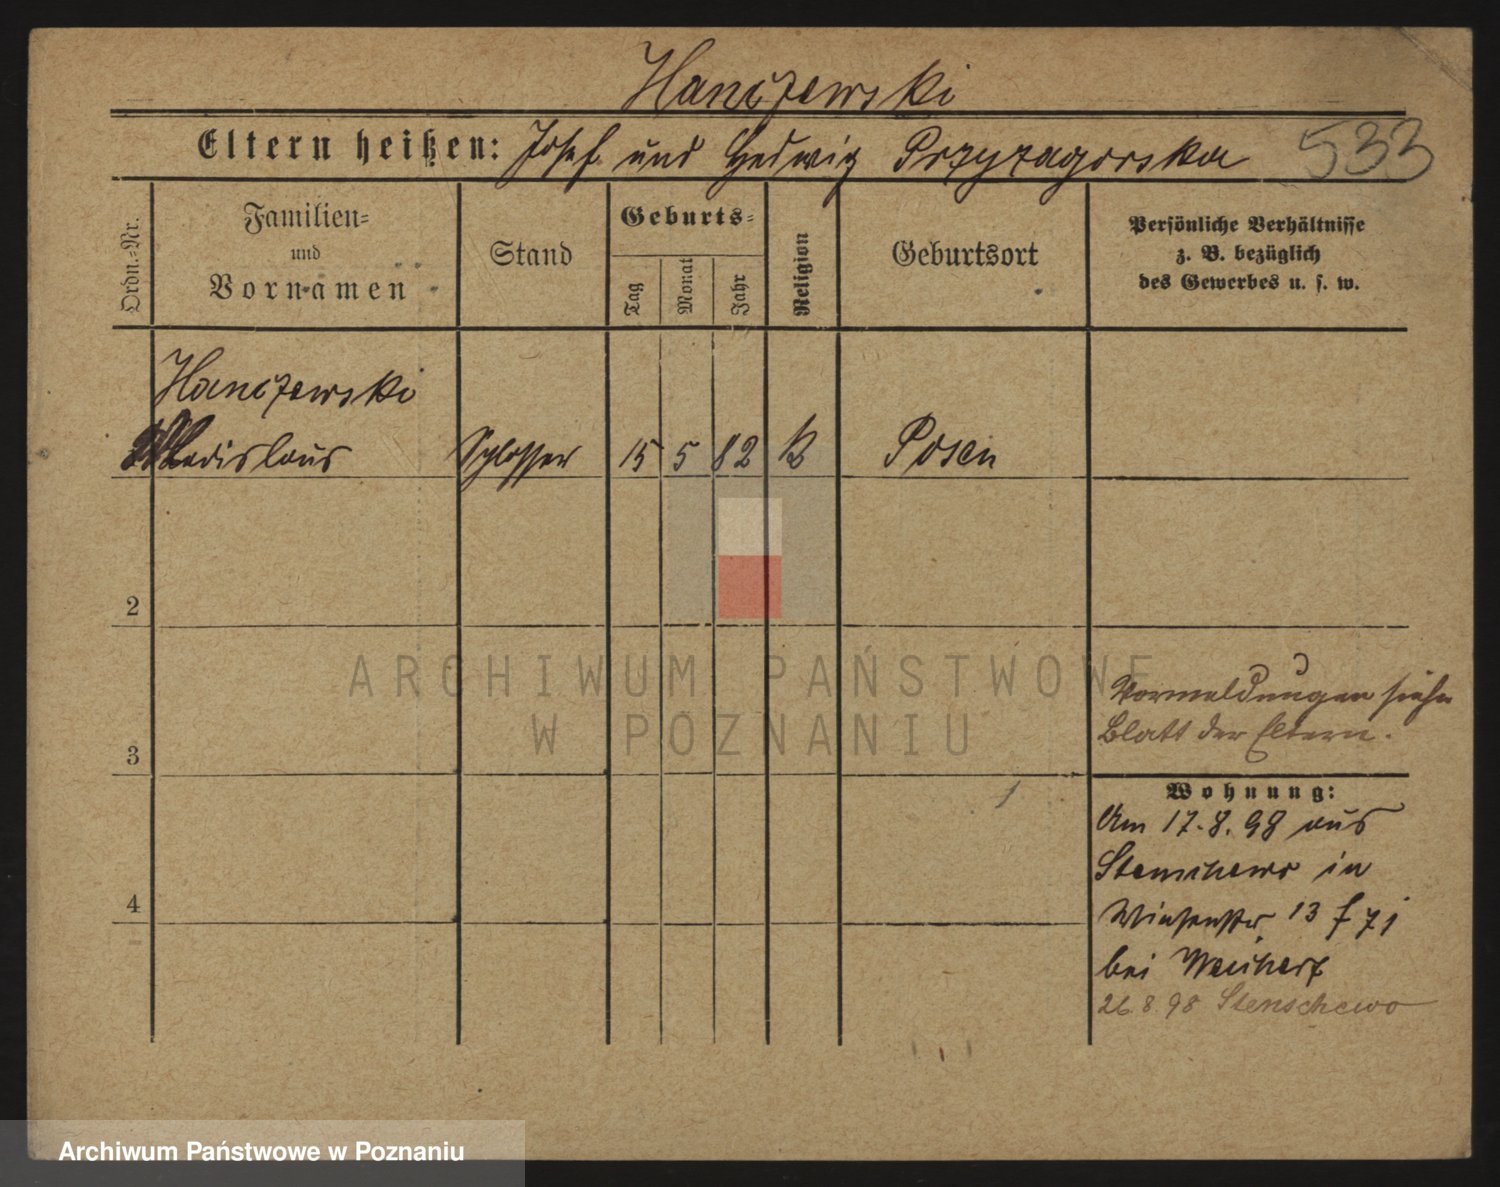 Hanczewski
Eltern heißen: Josef und Hedwig Przyzagorska 533
Ordn.=Nr.
Familien=
und
Vornamen
Stand
Geburts=
Tag
Monat
Jahr
Religion
Geburtsort
Persönliche Verhältnisse
z. B. bezüglich
des Gewerbes u. s. w.
Hanczewski
Wladislaus Schlosser 15 5 82 K Posen
2
ARCHIWUM PAŃSTWOWE
W POZNANIU
3
Vormeldungen siehe
Blatt der Eltern.
Wohnung:
Am 17.8.98 aus
Stenschewo in
13
bei
4
26 8 98 Stenschewo
Archiwum Państwowe w Poznaniu